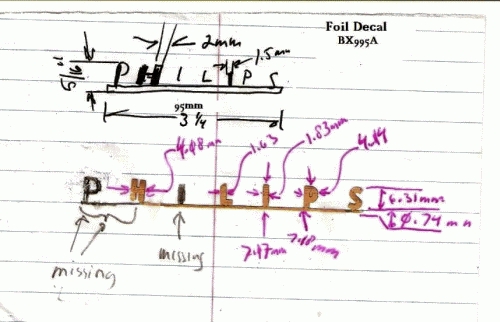 Foil Decal
BX995A
2mm
1.5mm
5/16
P H I L I P S
95mm
3 1/4
4.08mm
1.63
1.83mm
4.44
P H I L I P S
6.31mm
0.74mm
missing
missing
7.47mm